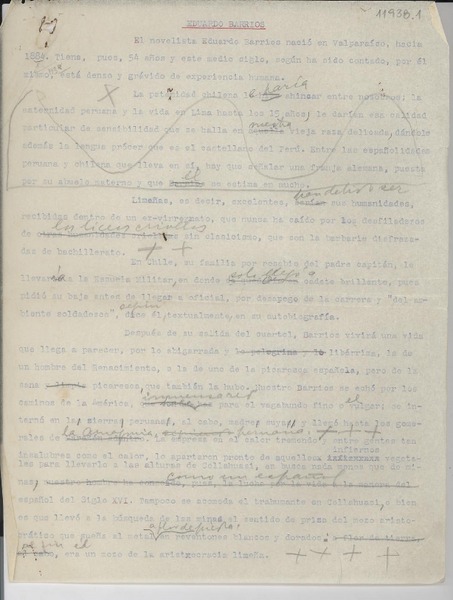 11938.1
EDUARDO BARRIOS
El novelista Eduardo Barrios nació en Valparaíso, hacia
1884. Tiene, pues, 54 años y este medio siglo, según ha sido contado, por él
mismo, está denso y grávido de experiencia humana.
La paternidad chilena haría chilenear entre nosotros; la
maternidad peruana y la vida en Lima hasta los 15 años, le darían esa calidad
particular de sensibilidad que se halla en nuestra vieja raza delicada, dándole
además la lengua prócer que es el castellano del Perú. Entre las españolidades
peruana y chilena que lleva en sí, hay que señalar una franja alemana, puesta
por su abuelo materno y que él estima en mucho.
Limeñas, es decir, excelentes, tienden a ser sus humanidades,
recibidas dentro de un ex-virreynato, que nunca ha caído por los desfiladeros
de los liceos criollos sin clasicismo, que con la barbarie disfrazada
de bachillerato.
En Chile, su familia por rescoldo del padre capitán, le
llevaría la Escuela Militar, en donde cadete brillante, para
pidió su baja antes de llegar a oficial, por despego de la carrera y "del ambiente
soldadesco", dice él, textualmente, en su autobiografía.
Después de su salida del cuartel, Barrios vivirá una vida
que llega a parecer, por lo abigarrada y libérrima, la de
un hombre del Renacimiento, o la de uno de la picaresca española, pero de la
sana picaresca, que también la hubo. Nuestro Barrios se echó por los
caminos de la América, inmensos para el vagabundo fino o el vulgar: se internó
en la sierra peruana, al cabo, madre suya, y llegó hasta los gomerales
de la Amazonia. La empresa en el calor tremendo, y entre gentes tan
insalubres como el calor, lo apartaron pronto de aquellos infiernos vegetales
para llevarlo a las alturas de Collahuasi, en busca nada menos que de minas,
como un español
español del Siglo XVI. Tampoco se acomoda el trabunante en Collahuasi, e bien
es que llevó a la búsqueda de las minas el sentido de prisa del mozo aristocrático
que sueña el metal en reventones blancos y dorados, a flor de tierra,
era un mozo de la aristocracia limeña.